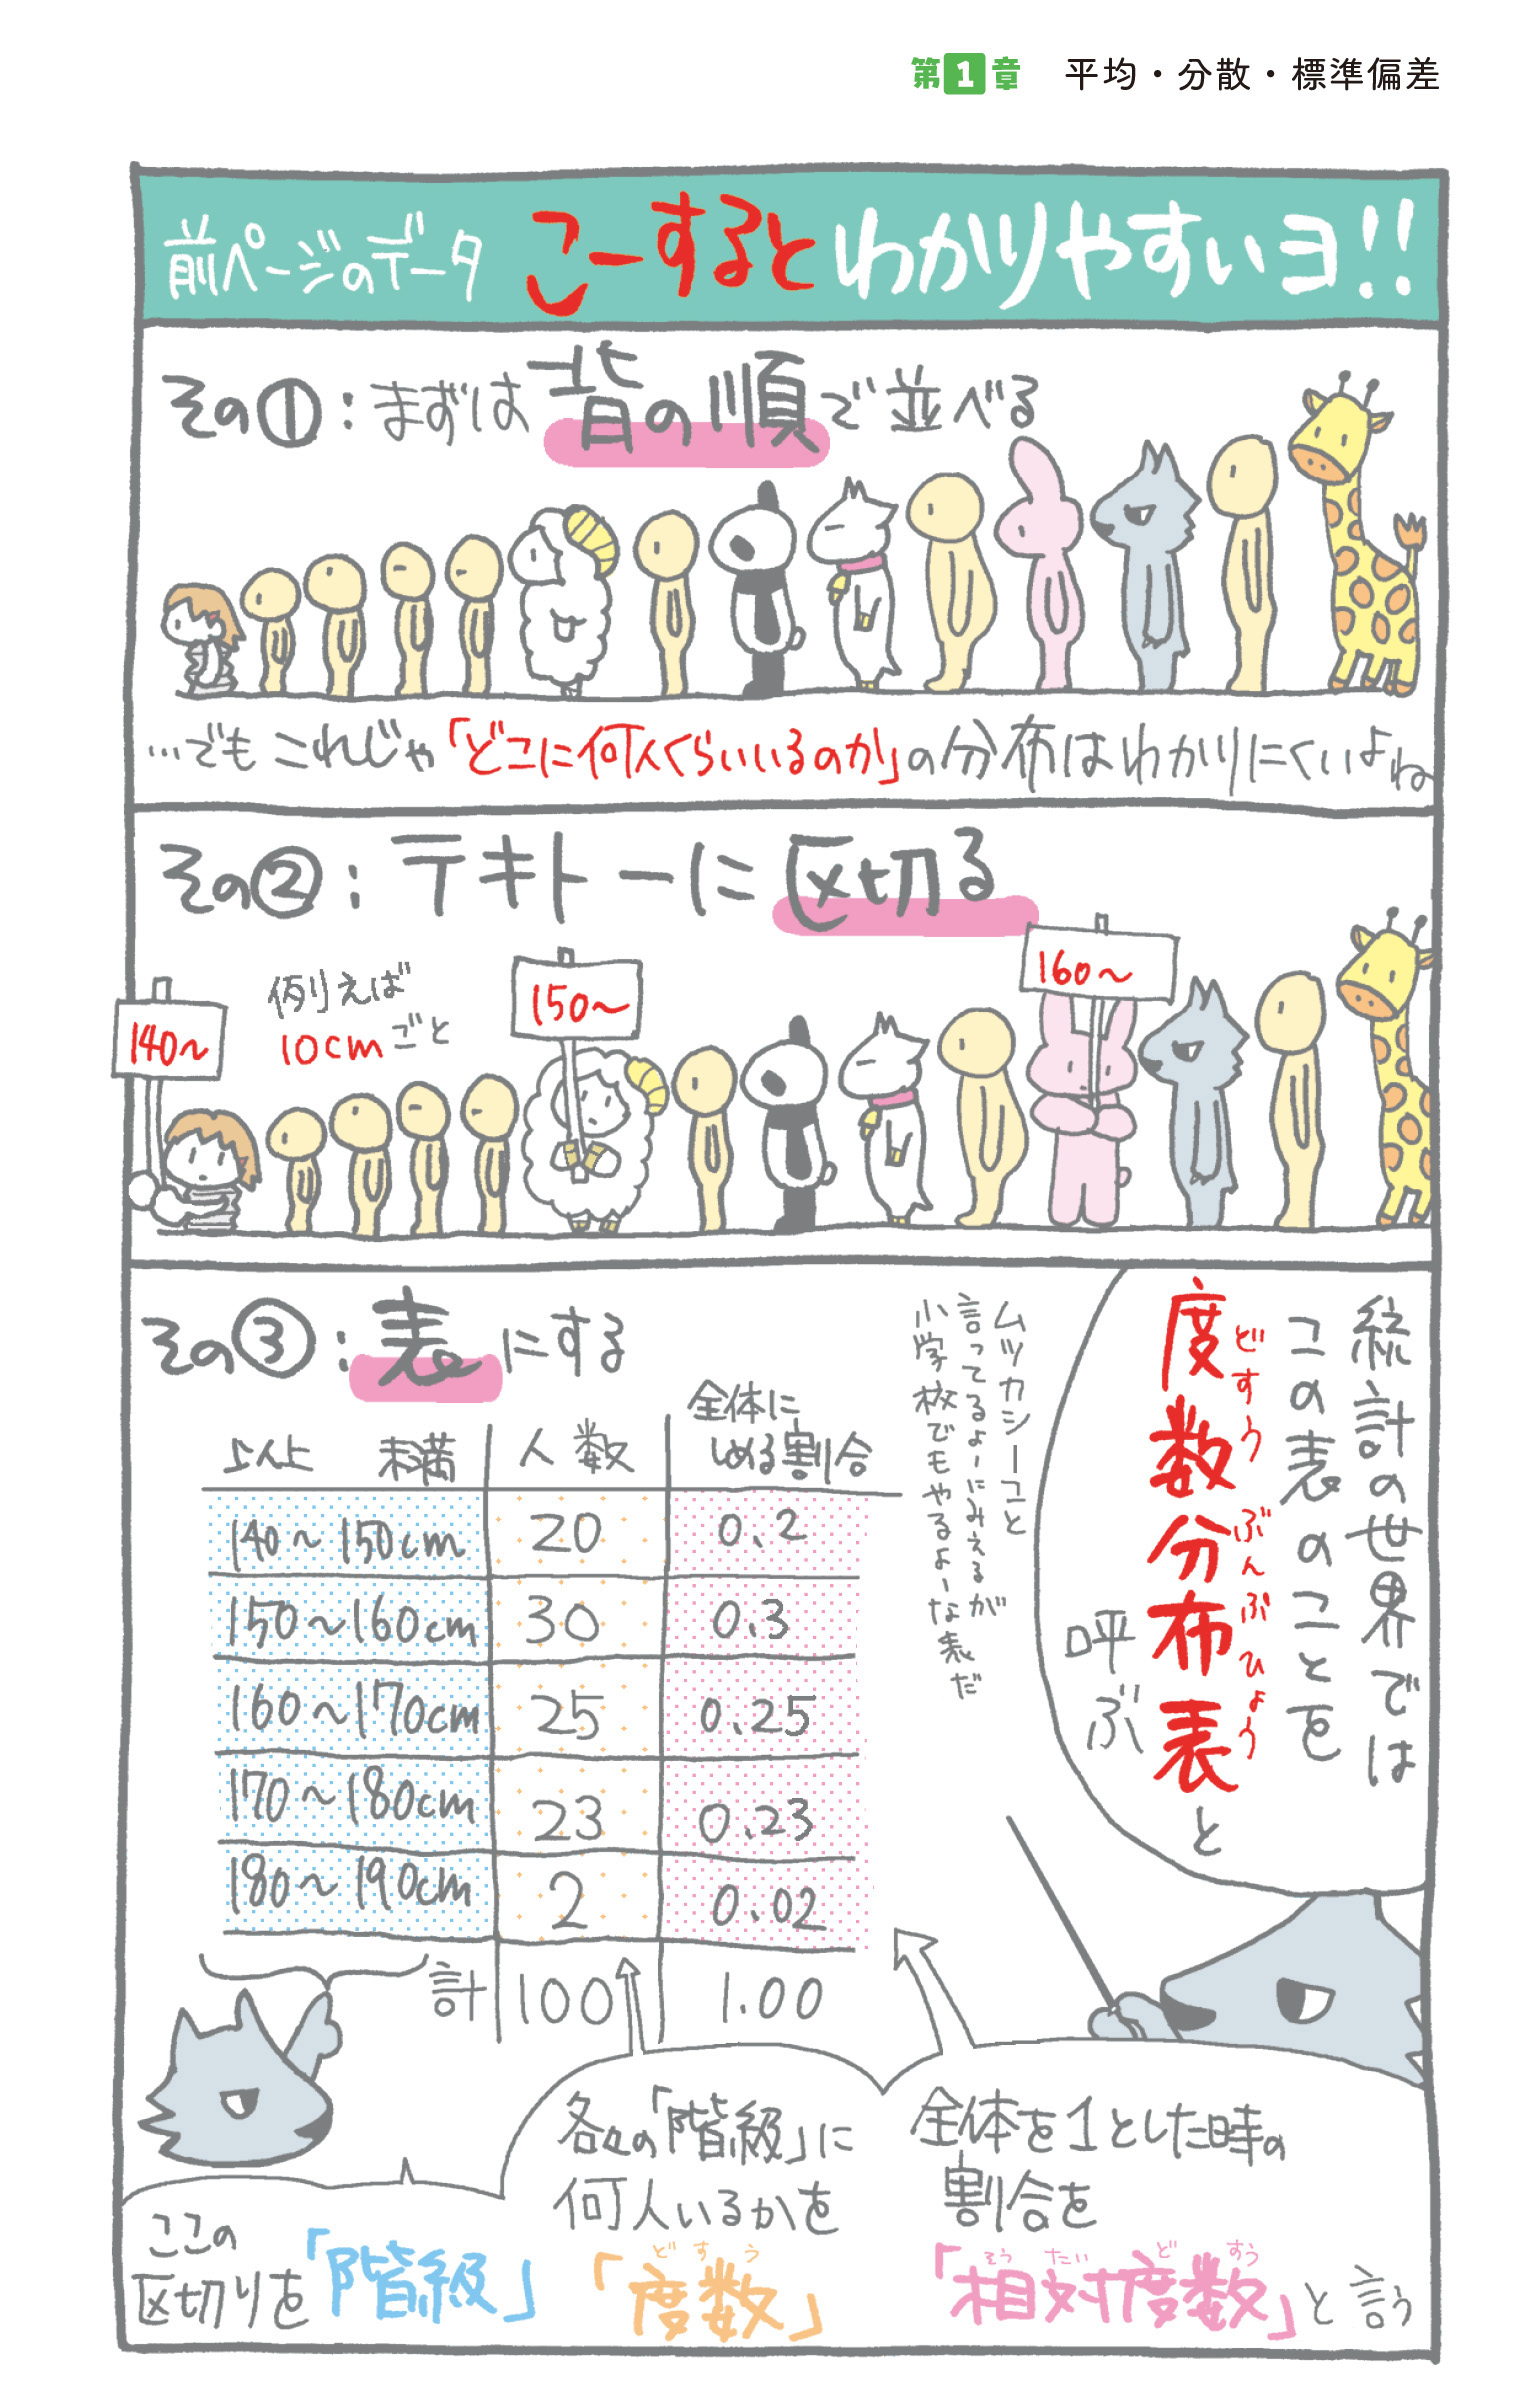 第1章 平均・分散・標準偏差
前ページのデータ こーするとわかりやすいヨ!!
その①:まずは背の順で並べる
…でもこれじゃ「どこに何人くらいいるのか」の分布はわかりにくいよね
その②:テキトーに区切る
例えば
10cmごと
140~
150~
160~
その③:表にする
以上 未満 人数 全体にしめる割合
140~150cm 20 0.2
150~160cm 30 0.3
160~170cm 25 0.25
170~180cm 23 0.23
180~190cm 2 0.02
計 100 1.00
統計の世界では
この表のことを
度数分布表と
どすうぶんぷひょう
呼ぶ
ムツカシーこと
言ってるよーにみえるが
小学校でもやるよーな表だ
ここの
区切りを「階級」
各々の「階級」に
何人いるかを
どすう
「度数」
全体を1とした時の
割合を
そうたいどすう
「相対度数」と言う